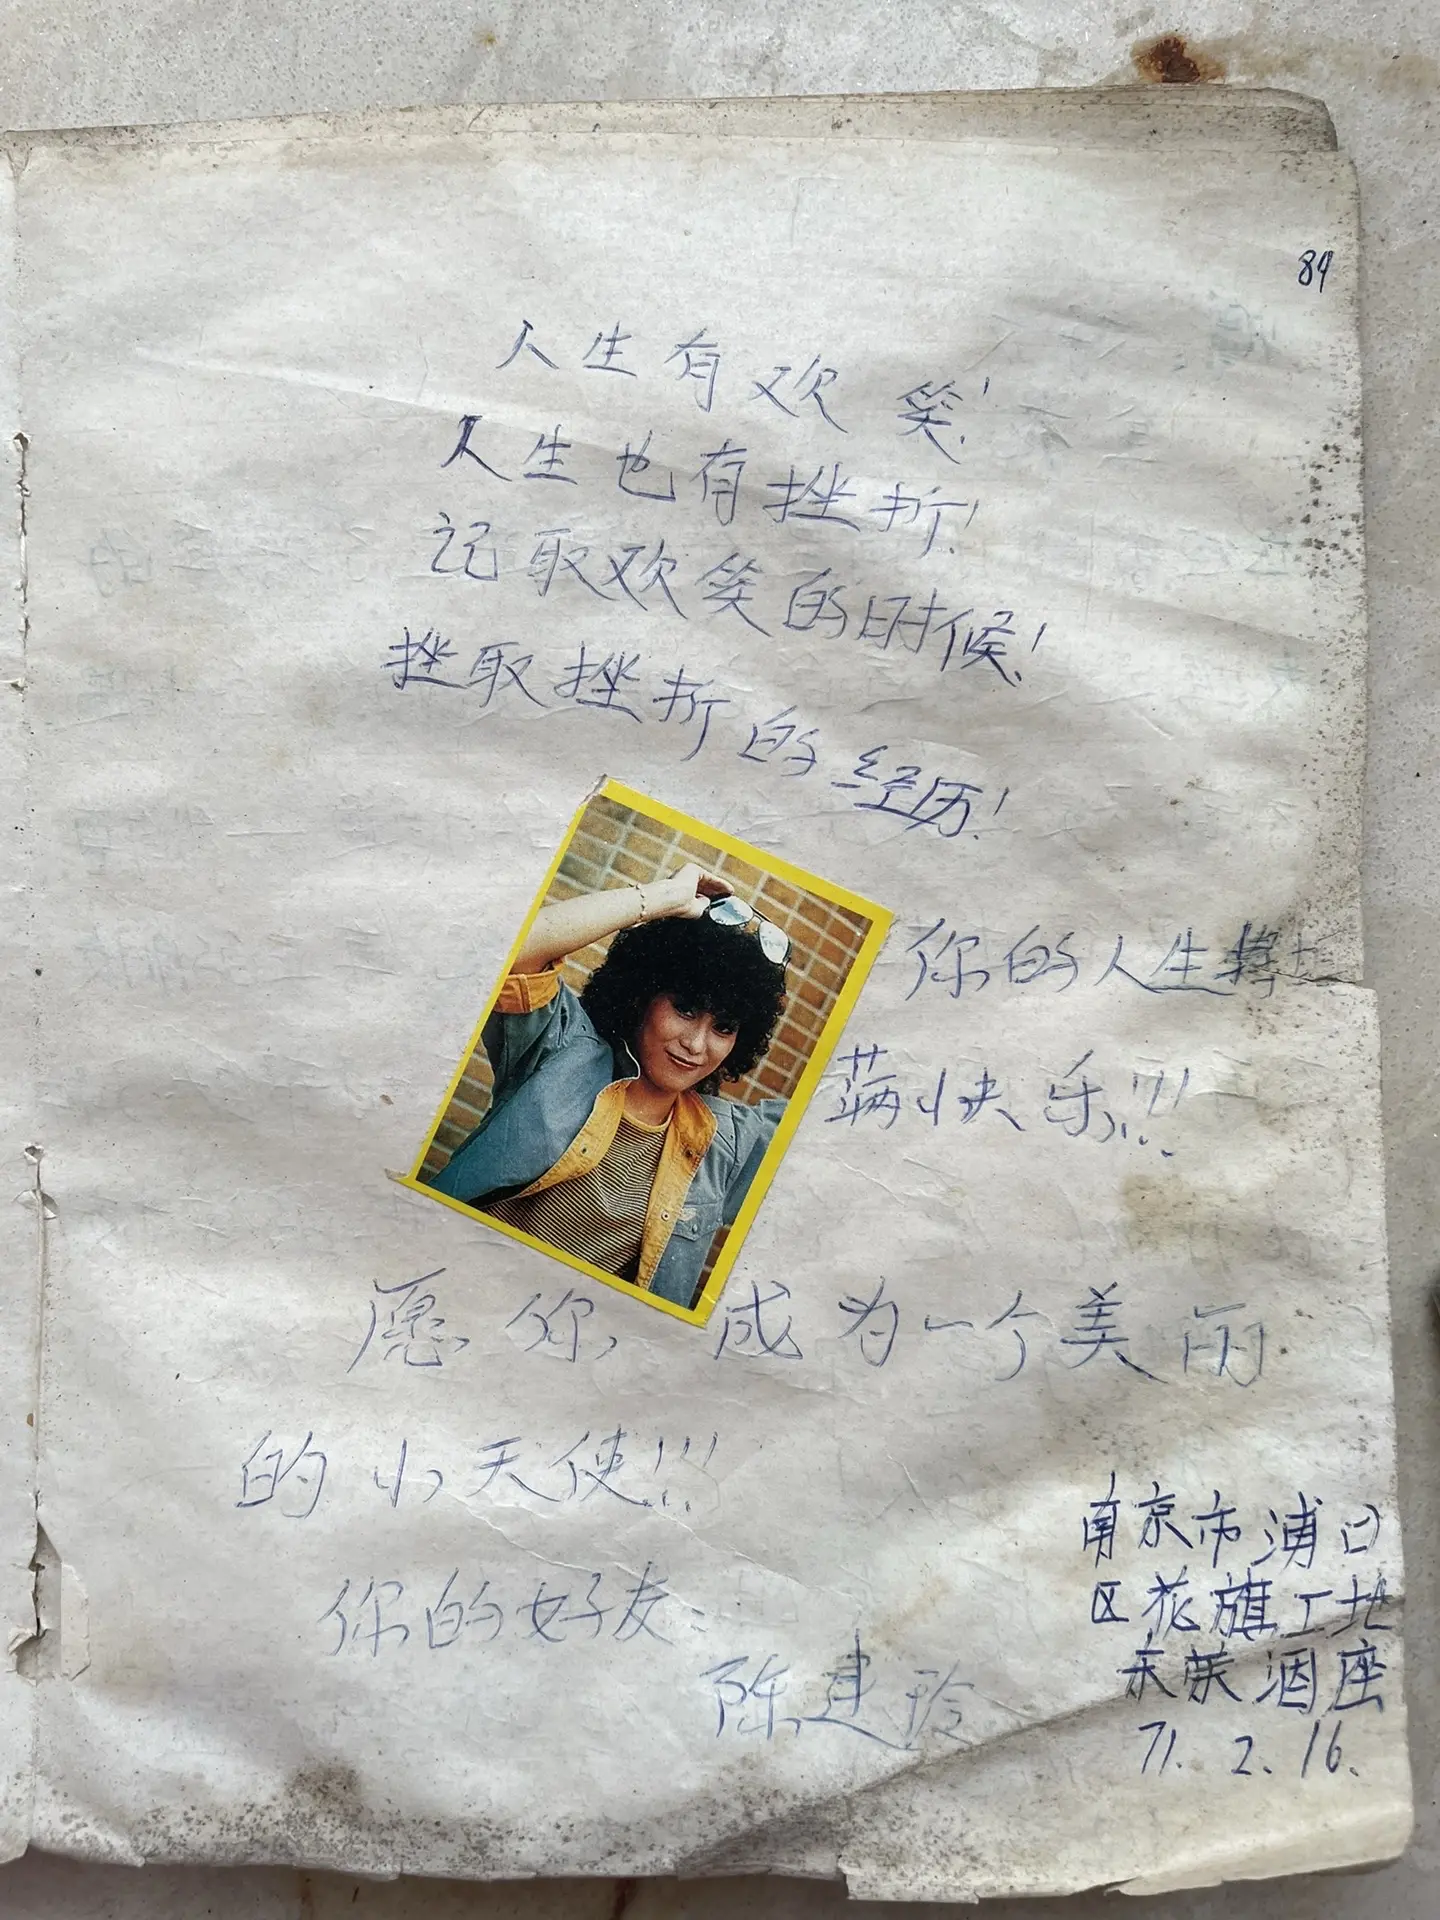 84
人生有欢笑!
人生也有挫折!
记取欢笑的时候!
挫取挫折的经历!
你的人生
快乐!!!
愿你成为一个美丽
的小天使!!!
你的好友:
陈建玲
南京市浦口
区花旗工地
酒座
71.2.16.